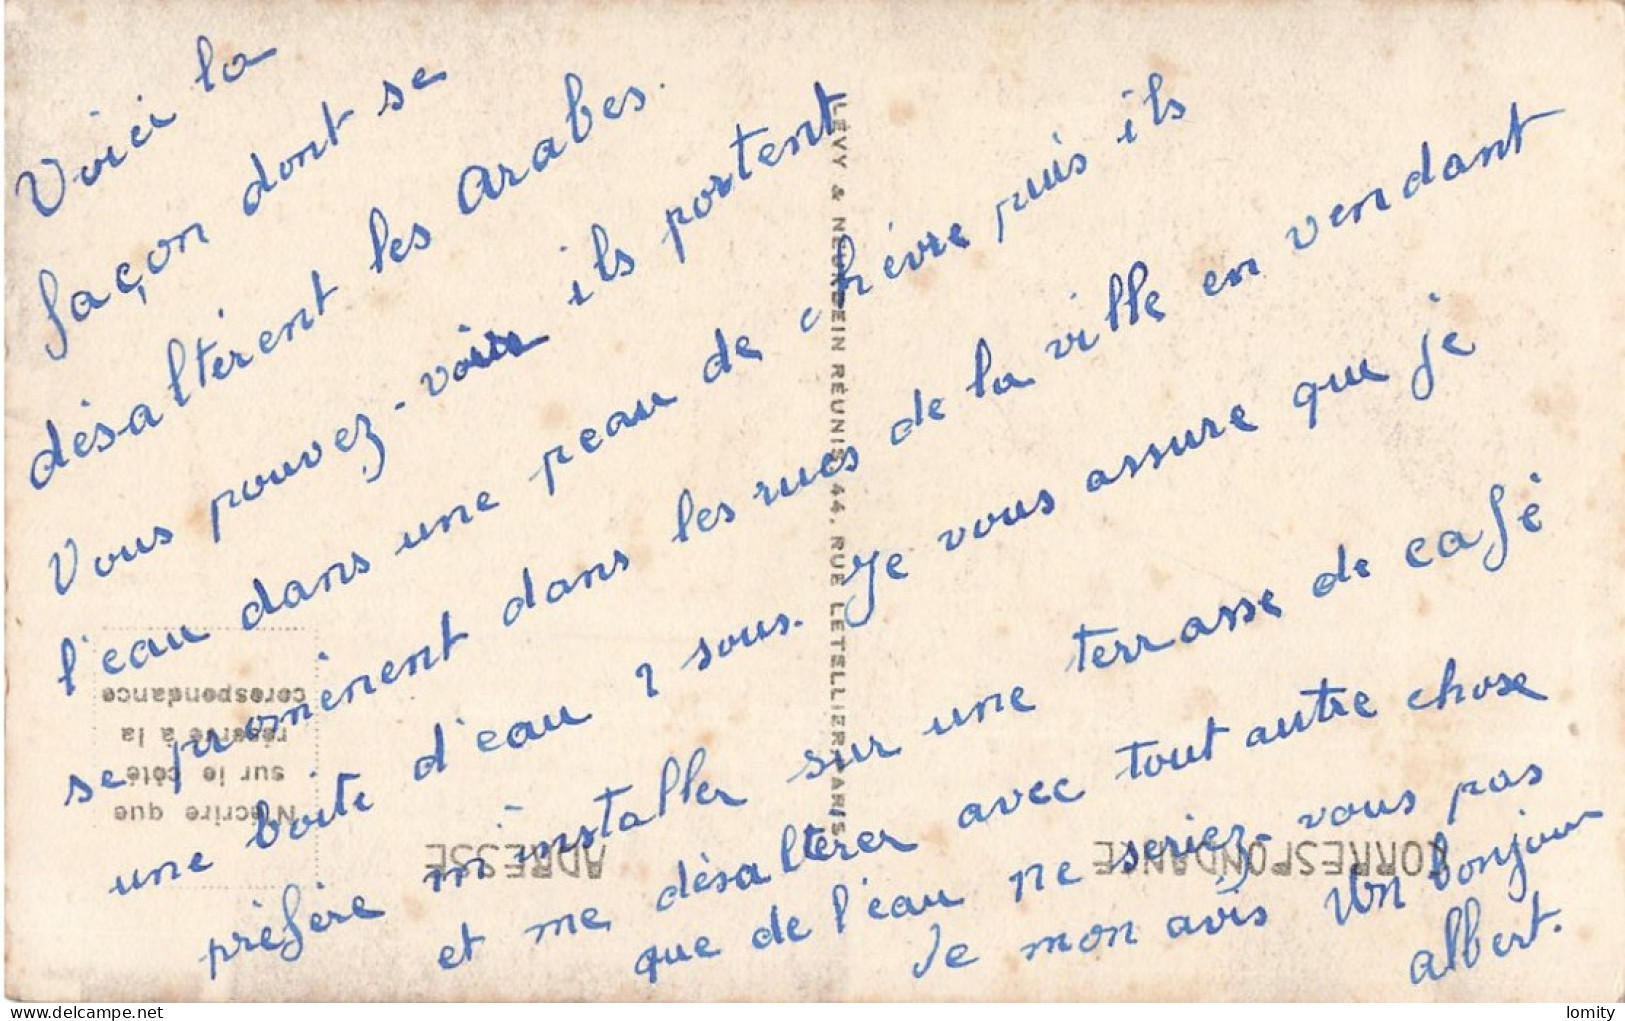 Voici la
façon dont se
désaltèrent les Arabes.
Vous pouvez-voir ils portent
l'eau dans une peau de chèvre puis ils
se promènent dans les rues de la ville en vendant
une boite d'eau 2 sous. Je vous assure que je
préfère m'installer sur une terrasse de café
et me désalterer avec tout autre chose
que de l'eau ne seriez-vous pas
de mon avis Un bonjour
albert.
LÉVY & NEURDEIN RÉUNIS, 44, RUE LETELLIER, PARIS
CORRESPONDANCE
ADRESSE
N'écrire que
sur le côté
réservé à la
corespondance
lomity
delcampe.net